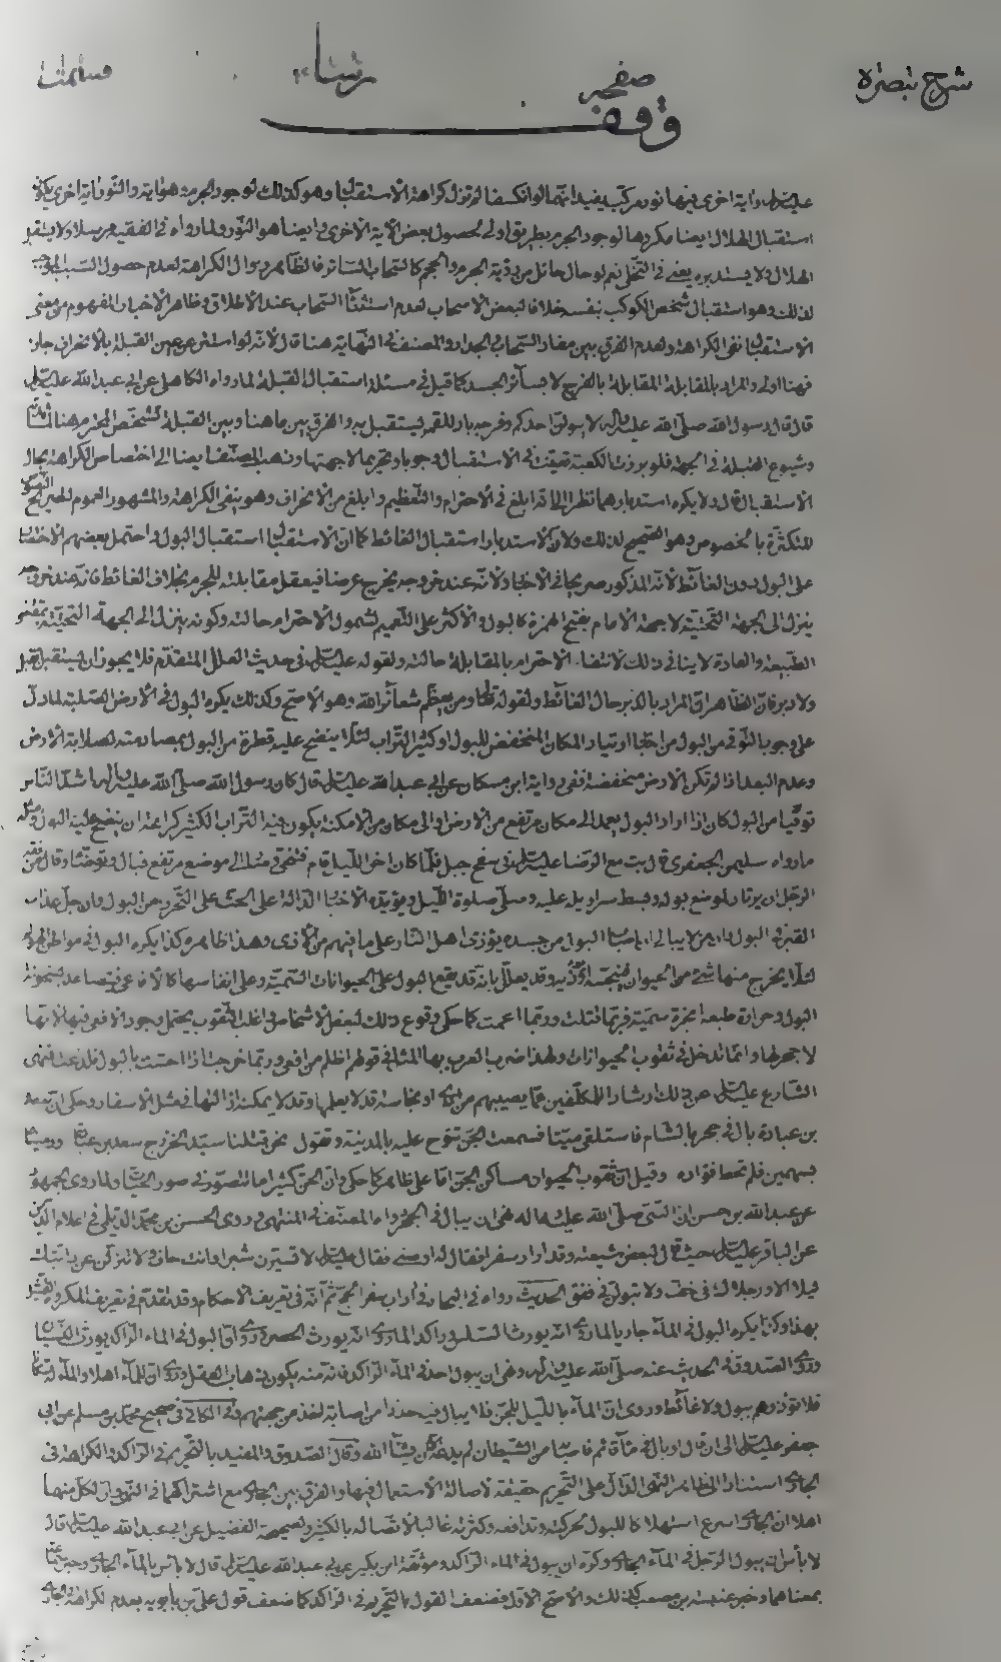 شرح تبصره
صفحه
وقف
عليه السلم رواية اخرى فيها نور مركب يفيد انهما لو انكسفا لم تزل كراهة الاستقبال وهو كذلك لوجود الجرم وهو اية والنور اية اخرى
استقبال الهلال ايضا مكروها لوجود الجرم بطريق اولى لحصول بعض الاية الاخرى ايضا هو النور ولما رواه في الفقيه مرسلا ولا يستقبل
الهلال ولا يستدبره يعنى في التخلى نعم لو حال حائل من رؤية الجرم والحجم كالسحاب الساتر فالظاهر زوال الكراهة لعدم حصول السبب
لذلك وهو استقبال شخص الكوكب بنفسه خلافا لبعض الاصحاب لعدم استثناء السحاب عند الاطلاق وظاهر الاخبار المفهوم من معنى
الاستقبال نفى الكراهة ولعدم الفرق بين مفاد السحاب والجدار والمصنف في النهاية هنا قال لانه لو استتر عن عين القبلة بالانحراف جاز
فهنا اولى والمراد بالمقابلة المقابلة بالفرج لا بسائر الجسد كما قيل في مسئلة استقبال القبلة لما رواه الكاهلى عن ابي عبد الله عليه السلم
قال قال رسول الله صلى الله عليه واله لا يبولن احدكم وفرجه باد للقمر يستقبل به والفرق بين ما هنا وبين القبلة تشخص الجرم هنا
وشيوع القبلة في الجهة فلو برزت الكعبة تعينت في الاستقبال وجوبا وتحريما لا جهتها وذهب المصنف ايضا الى اختصاص الكراهة بحال
الاستقبال قال ولا يكره استدبارهما نظرا الى انه ابلغ في الاحترام والتعظيم وابلغ من الانحراف وهو ينفى الكراهة والمشهور العموم
على البول دون الغائط لانه المذكور صريحا في الاخبار ولانه عند خروجه يخرج عرضا فيعقل مقابلته للجرم بخلاف الغائط فانه عند خروجه
ينزل الى الجهة التحتية لا جهة الامام بفتح الهمزة كالبول والاكثر على التعميم لشمول الاحترام حالته وكونه ينزل الى الجهة التحتية
الطبيعة والعادة لا ينافي ذلك لانتفاء الاحترام بالمقابلة حالته ولقوله عليه السلم في حديث العلل المتقدم فلا يجوز ان يستقبل بقبل
ولا دبر فان الظاهر ان المراد بالدبر حال الغائط ولقوله تعالى ومن يعظم شعائر الله وهو الاصح وكذلك يكره البول في الارض الصلبة لما دل
على وجوب التوقى من البول من استحباب ارتياد المكان المنخفض للبول او كثير التراب لئلا ينضح عليه قطرة من البول بمصادمته لصلابة الارض
وعدم البعد اذا لم تكن الارض منخفضة ففى رواية ابن مسكان عن ابي عبد الله عليه السلم قال كان رسول الله صلى الله عليه واله اشد الناس
توقيا من البول كان اذا اراد البول يعمد الى مكان مرتفع من الارض او الى مكان من الامكنة يكون فيه التراب الكثير كراهة ان ينضح عليه البول
ما رواه سليمن الجعفرى قال بت مع الرضا عليه السلم في سفح جبل فلما كان اخر الليل قام فتنحى وصار الى موضع مرتفع فبال وتوضأ وقال من فقه
الرجل ان يرتاد لموضع بوله وبسط سراويله عليه وصلى صلوة الليل ويؤيده الاخبار الدالة على الحث على التحرز من البول وان جل عذاب
القبر في البول وان من لا يبالى اين اصاب البول من جسده يؤذى اهل النار على ما فيهم من الاذى وهذا ظاهر وكذا يكره البول في مواطن الهوام
لئلا يخرج منها شئ من الحيوان فينجسه او يؤذيه وقد يعلل بانه قد يقع البول على الحيوانات السمية وعلى انفاسها كالافاعى فيتصاعد بسخونة
البول وحرارة طبعه ابخرة سمية فربما قتلت وربما اعمت كما حكى وقوع ذلك لبعض الاشخاص واغلب الثقوب يحتمل وجود الافعى فيها لانها
لا جحر لها وانما تدخل في ثقوب الحيوانات ولهذا ضرب العرب بها المثل في قولهم اظلم من افعى وربما خرجت اذا احست بالبول فلدغت فنهى
الشارع عليه السلم عن ذلك ارشادا للمكلفين عما يصيبهم من اذى او نجاسة قد لا يعلمها وقد لا يمكنه ازالتها في مثل الاسفار وحكى ان سعد
بن عبادة بال في جحر بالشام فاستلقى ميتا فسمعت الجن تنوح عليه بالمدينة وتقول نحن قتلنا سيد الخزرج سعد بن عبادة ورميناه
بسهمين فلم نخط فؤاده وقيل ان ثقوب الحيوان مساكن الجن اما على ظاهره كما حكى وان الجن كثيرا ما تتصور في صور الحيات ولما روى الجمهور
عن عبد الله بن حسن ان النبى صلى الله عليه واله نهى ان يبال في الجحر رواه المصنف في المنتهى وروى الحسن بن محمد الديلمى في اعلام الدين
عن الباقر عليه السلم حيث قال لبعض شيعته وقد اراد سفرا فقال له اوصنى فقال عليه السلم لا تسيرن شبرا وانت حاف ولا تنزلن عن دابتك
ليلا الا ورجلاك في خف ولا تبولن في نفق الحديث رواه في البحار في اداب سفر الحج ثم انه في تعريف الاحكام وقد تقدم في تعريف المكروه
بهذا وكذا يكره البول في الماء جاريا لما روى انه يورث السلس وراكدا لما روى انه يورث الحصر وروى ان البول في الماء الراكد يورث النسيان
وروى الصدوق في الحديث عنه صلى الله عليه واله ونهى ان يبول احد في الماء الراكد فانه منه يكون ذهاب العقل وروى ان للماء اهلا والماء له
فلا تؤذوهم ببول ولا غائط وروى ان الماء بالليل للجن فلا يبال فيه حذرا من اصابة لفذ من جهتهم وفي الكافى في صحيح محمد بن مسلم عن ابي
جعفر عليه السلم الى ان قال او بال في ماء قائم فاصابه من الشيطان لم يدعه الا ان يشاء الله وقال الصدوق والمفيد بالتحريم في الراكد والكراهة في
الجارى استنادا الى ظاهر النهى الدال على التحريم حقيقة لاصالة الاستعمال فيها والفرق بين الجارى مع اشتراكهما في النهى وان لكل منهما
اهلا ان الجارى اسرع استهلاكا للبول لحركته وتدافعه وكثرته غالبا لاتصاله بالكثير ولصحيحة الفضيل عن ابي عبد الله عليه السلم قال
لا بأس ان يبول الرجل في الماء الجارى وكره ان يبول في الماء الراكد وموثقة ابن بكير عن ابي عبد الله عليه السلم قال لا بأس بالماء الجارى
بمعناهما وخبر عنبسة بن مصعب كذلك والاصح الاول فضعف القول بالتحريم في الراكد كما ضعف قول على بن بابويه بعدم كراهة الجارى